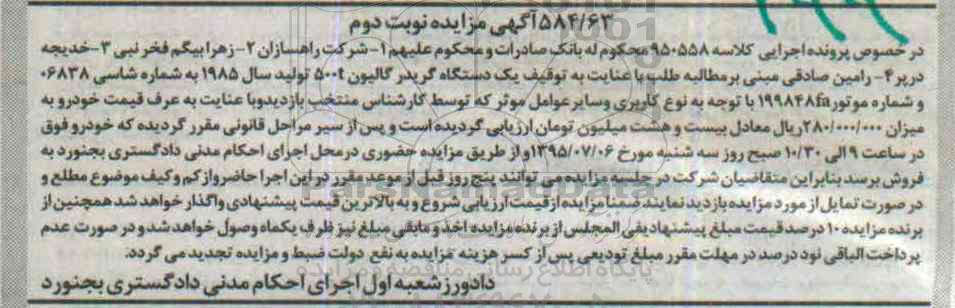 ۵۸۴/۶۳ آگهی مزایده نوبت دوم
در خصوص پرونده اجرایی کلاسه ۹۵۰۵۵۸ محکوم له بانک صادرات و محکوم علیهم ۱- شرکت راهسازان ۲- زهرا بیگم فخر نبی ۳- خدیجه
درپر ۴- رامین صادقی مبنی بر مطالبه طلب با عنایت به توقیف یک دستگاه گریدر گالیون ۵۰۰t تولید سال ۱۹۸۵ به شماره شاسی ۰۶۸۳۸
و شماره موتور ۱۹۹۸۴۸fa با توجه به نوع کاربری و سایر عوامل موثر که توسط کارشناس منتخب بازدید و با عنایت به عرف قیمت خودرو به
میزان ۲۸۰/۰۰۰/۰۰۰ ریال معادل بیست و هشت میلیون تومان ارزیابی گردیده است و پس از سیر مراحل قانونی مقرر گردیده که خودرو فوق
در ساعت ۹ الی ۱۰/۳۰ صبح روز سه شنبه مورخ ۱۳۹۵/۰۷/۰۶ و از طریق مزایده حضوری در محل اجرای احکام مدنی دادگستری بجنورد به
فروش برسد بنابراین متقاضیان شرکت در جلسه مزایده می توانند پنج روز قبل از موعد مقرر در این اجرا حاضر و از کم و کیف موضوع مطلع و
در صورت تمایل از مورد مزایده بازدید نمایند ضمنا مزایده از قیمت ارزیابی شروع و به بالاترین قیمت پیشنهادی واگذار خواهد شد همچنین از
برنده مزایده ۱۰ درصد قیمت مبلغ پیشنهاد یفی المجلس از برنده مزایده اخذ و مابقی مبلغ نیز ظرف یکماه وصول خواهد شد و در صورت عدم
پرداخت الباقی نود درصد در مهلت مقرر مبلغ تودیعی پس از کسر هزینه مزایده به نفع دولت ضبط و مزایده تجدید می گردد.
پایگاه اطلاع رسانی مناقصه و مزایده
دادورز شعبه اول اجرای احکام مدنی دادگستری بجنورد